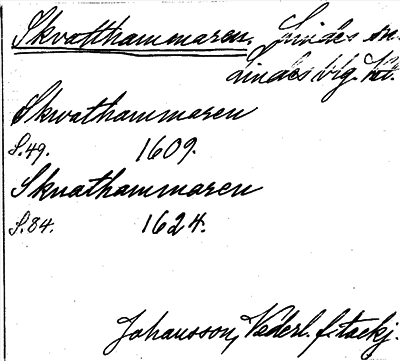 Skvatthammaren. Lindes sn.
Lindesbg. Kt.
Skwathammaren
S. 49. 1609.
Skuathammaren
S. 84. 1624.
Johansson, Vederl. f. tackj.